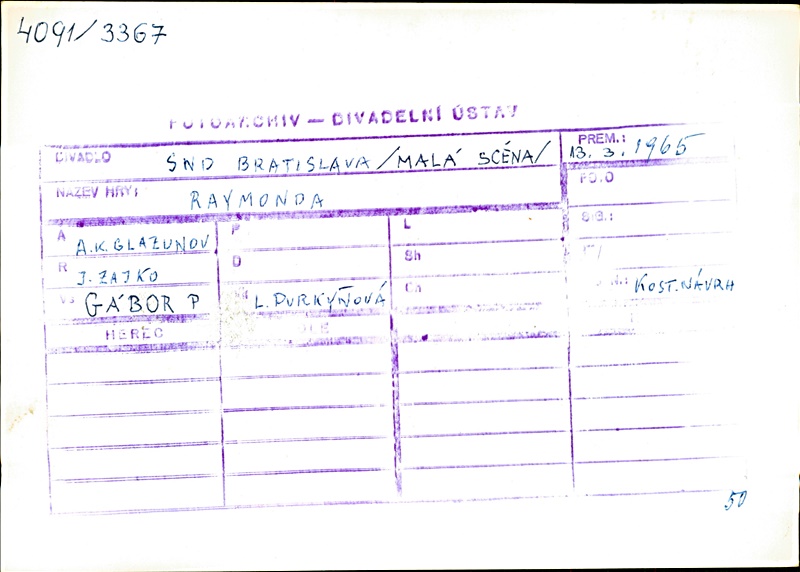 4091/3367
FOTOARCHIV — DIVADELNÍ ÚSTAV
DIVADLO SND BRATISLAVA /MALÁ SCÉNA/ PREM.: 13. 3. 1965
NÁZEV HRY: RAYMONDA FOTO
A A.K. GLAZUNOV P L SIG.:
R J. ZAJKO D Sh
VS GÁBOR P L. PURKYŇOVÁ Ch KOST. NÁVRH
HEREC
50